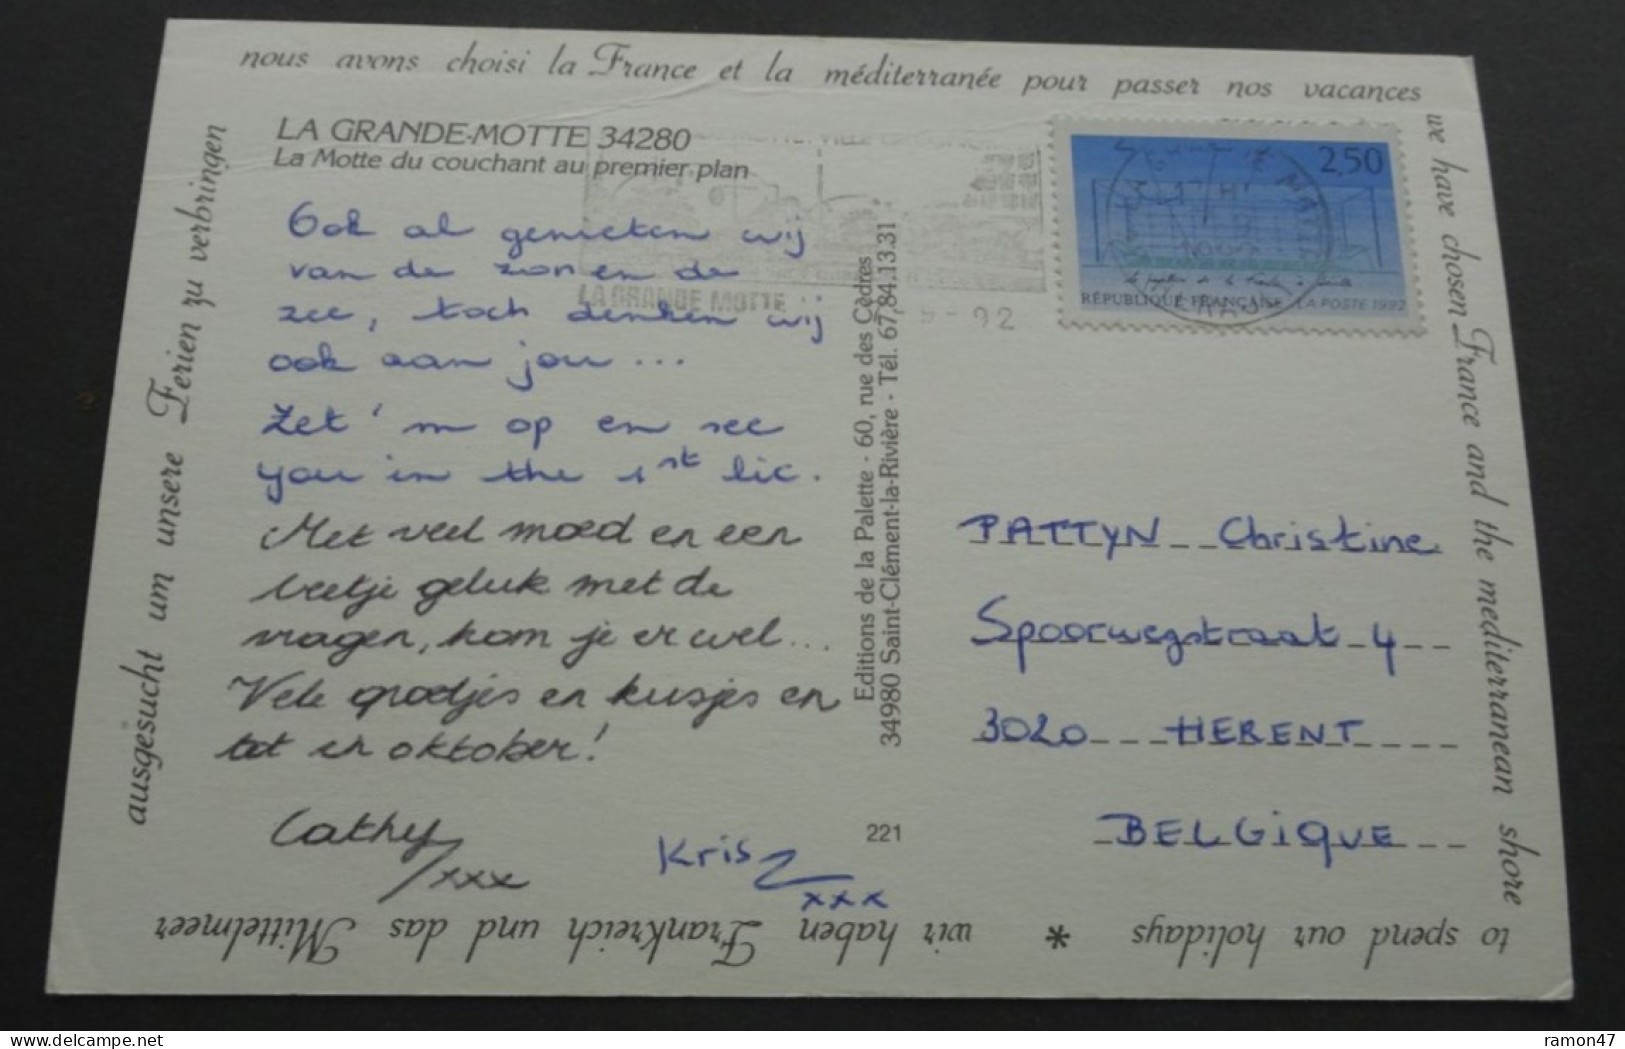 nous avons choisi la France et la méditerranée pour passer nos vacances
we have chosen France and the méditerranean shore
to spend our holidays * wir haben Frankreich und das Mittelmeer
ausgesucht um unsere Ferien zu verbringen
LA GRANDE-MOTTE 34280
La Motte du couchant au premier plan
Ook al genieten wij
van de zon en de
zee, toch denken wij
ook aan jou ...
Zet 'm op en see
you in the 1st lic.
Met veel moed en een
beetje geluk met de
vragen, kom je er wel...
Vele groetjes en kusjes en
tot in oktober!
Cathy
xxx
Kris
xxx
Editions de la Palette - 60, rue des Cèdres
34980 Saint-Clément-la-Rivière - Tél. 67.84.13.31
221
LA GRANDE MOTTE
92
2,50
RÉPUBLIQUE FRANÇAISE LA POSTE 1992
PATTYN Christine
Spoorwegstraat 4
3020 HERENT
BELGIQUE
delcampe.net
ramon47